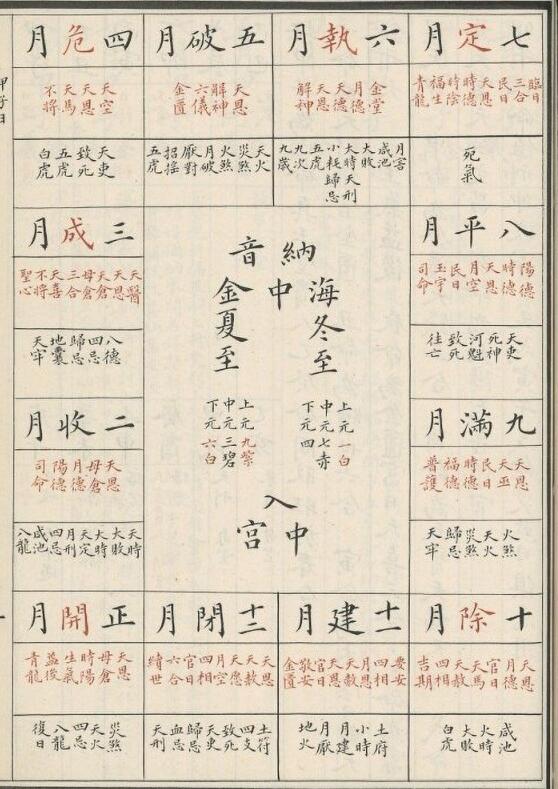 七定月
臨日
三合
民日
天恩
時德
時陰
福生
青龍
死氣
六執月
金堂
月德
天德
天恩
解神
月害
咸池
大敗
大時
天刑
小耗
歸忌
五虎
九次
九歲
五破月
天恩
解神
六儀
金匱
天火
災煞
火煞
月破
厭對
招搖
五虎
四危月
天空
天恩
天馬
不將
天吏
致死
五虎
白虎
八平月
陽德
時德
天恩
月空
民日
玉宇
司命
天吏
死神
河魁
致死
往亡
納音
海中金
冬至
上元一白
中元七赤
下元四
夏至
上元九紫
中元三碧
下元六白
入中宮
三成月
天醫
天恩
天倉
母倉
三合
天喜
不將
聖心
八德
四忌
歸忌
地囊
天牢
九滿月
天恩
天巫
民日
時德
福德
普護
火煞
天火
災煞
歸忌
天牢
二收月
天恩
母倉
月德
陽德
司命
天時
大敗
大時
天定
月刑
四忌
咸池
八龍
十除月
天恩
月德
官日
天馬
天赦
四相
吉期
咸池
火時
大敗
白虎
十一建月
要安
四相
月恩
天赦
天恩
官日
敬安
金匱
土府
小時
月建
月厭
地火
十二閉月
天恩
天赦
天愿
月空
四相
官日
六合
續世
土符
四支
致死
天吏
歸忌
血忌
天刑
正開月
天恩
母倉
時陽
生氣
益後
青龍
災煞
天火
四忌
八龍
復日